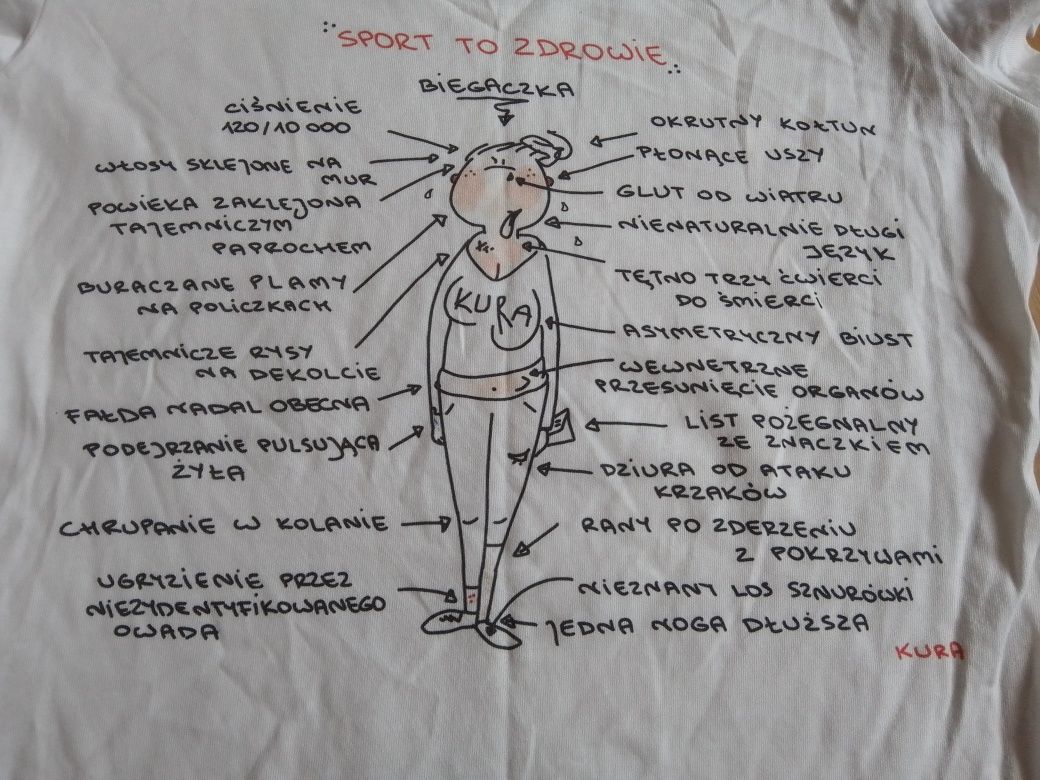 SPORT TO ZDROWIE
BIEGACZKA
CIŚNIENIE
120/10 000
WŁOSY SKLEJONE NA
MUR
POWIEKA ZAKLEJONA
TAJEMNICZYM
PAPROCHEM
BURACZANE PLAMY
NA POLICZKACH
TAJEMNICZE RYSY
NA DEKOLCIE
FAŁDA NADAL OBECNA
PODEJRZANIE PULSUJĄCA
ŻYŁA
CHRUPANIE W KOLANIE
UGRYZIENIE PRZEZ
NIEZYDENTYFIKOWANEGO
OWADA
KURA
OKRUTNY KOŁTUN
PŁONĄCE USZY
GLUT OD WIATRU
NIENATURALNIE DŁUGI
JĘZYK
TĘTNO TRZY ĆWIERCI
DO ŚMIERCI
ASYMETRYCZNY BIUST
WEWNETRZNE
PRZESUNIĘCIE ORGANÓW
LIST POŻEGNALNY
ZE ZNACZKIEM
DZIURA OD ATAKU
KRZAKÓW
RANY PO ZDERZENIU
Z POKRZYWAMI
NIEZNANY LOS SZNURÓWKI
JEDNA NOGA DŁUŻSZA
KURA